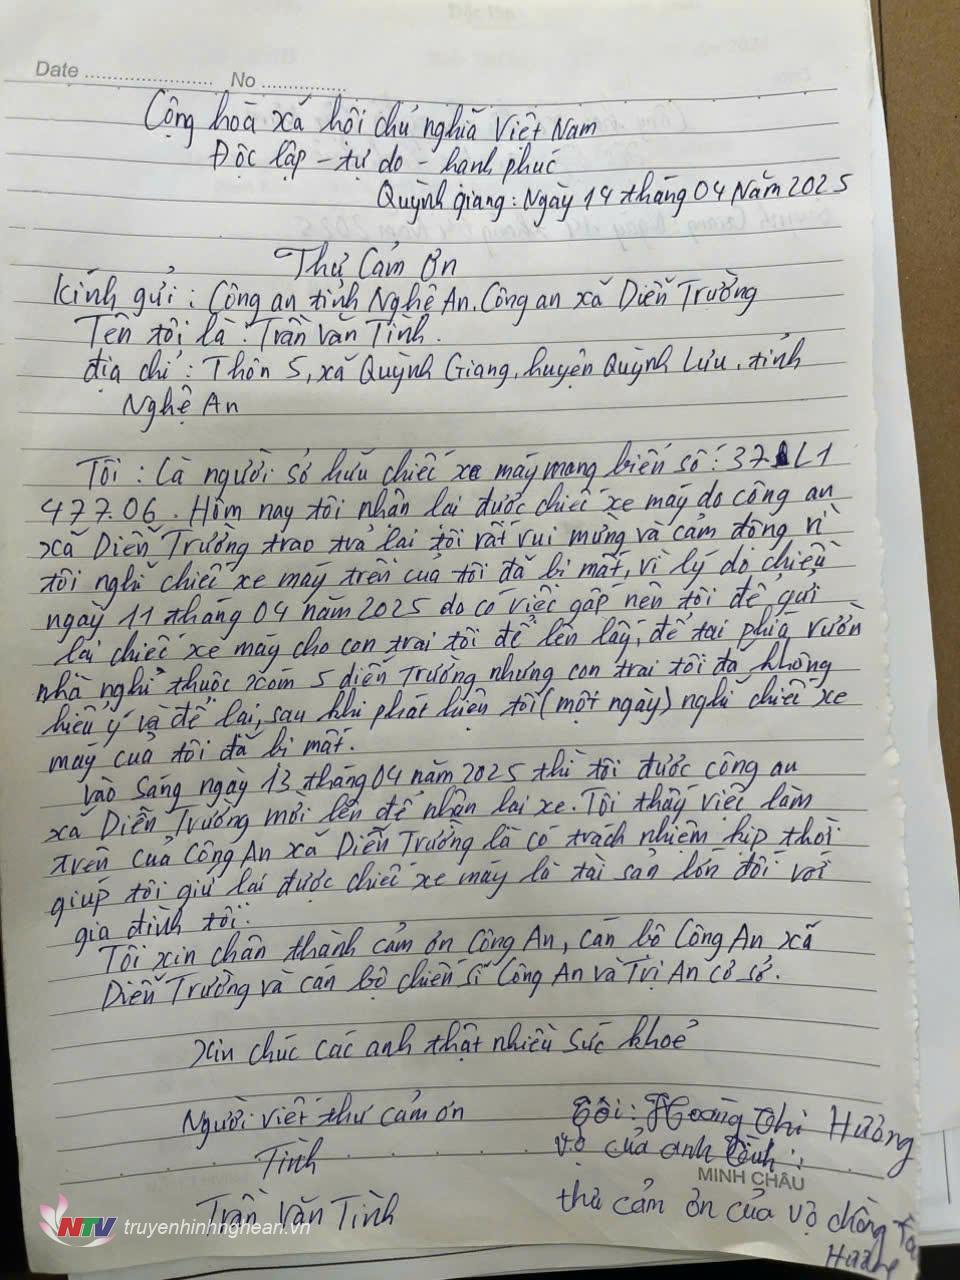 Date ........................ No ................
Cộng hoà xã hội chủ nghĩa Việt Nam
Độc lập - tự do - hạnh phúc
Quỳnh giang: Ngày 14 tháng 04 Năm 2025
Thư Cảm Ơn
Kính gửi: Công an tỉnh Nghệ An. Công an xã Diễn Trường
Tên tôi là: Trần Văn Tình.
địa chỉ: Thôn 5, xã Quỳnh Giang, huyện Quỳnh Lưu, tỉnh
Nghệ An
Tôi: Là người sở hữu chiếc xe máy mang biển số: 37 L1
477.06. Hôm nay tôi nhận lại được chiếc xe máy do công an
xã Diễn Trường trao trả lại tôi rất vui mừng và cảm động vì
tôi nghĩ chiếc xe máy trên của tôi đã bị mất, vì lý do chiều
ngày 11 tháng 04 năm 2025 do có việc gấp nên tôi để gửi
lại chiếc xe máy cho con trai tôi để lên lấy, để tại phía vườn
nhà nghỉ thuộc xóm 5 diễn Trường nhưng con trai tôi đã không
hiểu ý và để lại, sau khi phát hiện tôi (một ngày) nghĩ chiếc xe
máy của tôi đã bị mất.
vào sáng ngày 13 tháng 04 năm 2025 thì tôi được công an
xã Diễn Trường mời lên để nhận lại xe. Tôi thấy việc làm
trên của Công An xã Diễn Trường là có trách nhiệm kịp thời
giúp tôi giữ lại được chiếc xe máy là tài sản lớn đối với
gia đình tôi.
Tôi xin chân thành cảm ơn Công An, cán bộ Công An xã
Diễn Trường và cán bộ chiến sĩ Công An và Trị An cơ sở.
Xin chúc các anh thật nhiều sức khoẻ
Người viết thư cảm ơn
Tình
Trần Văn Tình
Tôi: Hoàng Thị Hương
vợ của anh Tình
MINH CHÂU
thư cảm ơn của vợ chồng
Hương
NTV truyenhinhnghean.vn